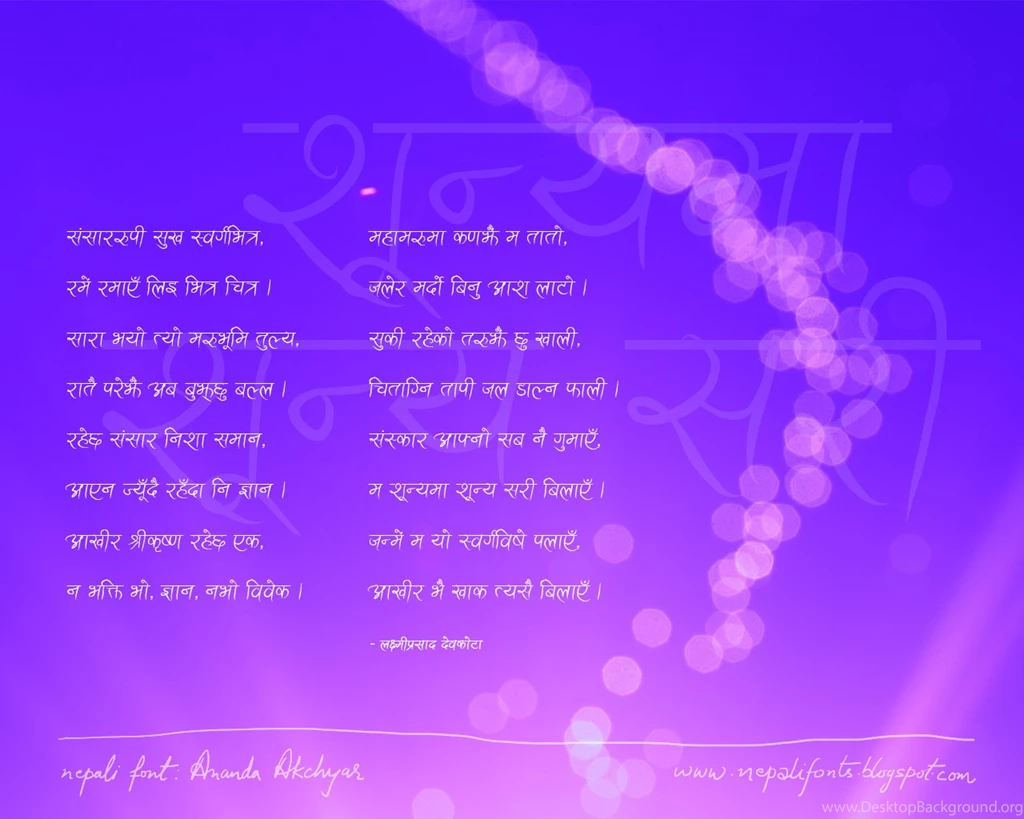 शून्यमा
शून्य सरी
संसाररुपी सुख स्वर्गभित्र,
रमें रमाएँ लिइ भित्र चित्र ।
सारा भयो त्यो मरुभूमि तुल्य,
रातै परेझैं अब बुझ्छु बल्ल ।
रहेछ संसार निशा समान,
आएन ज्यूँदै रहँदा नि ज्ञान ।
आखीर श्रीकृष्ण रहेछ एक,
न भक्ति भो, ज्ञान, नभो विवेक ।
महामरुमा कणझैं म तातो,
जलेर मर्दो बिनु आश् लाटो ।
सुकी रहेको तरुझैं छु खाली,
चिताग्नि तापी जल डाल्न फाली ।
संस्कार आफ्नो सब नै गुमाएँ,
म शून्यमा शून्य सरी बिलाएँ ।
जन्में म यो स्वर्गविषे पलाएँ,
आखीर भै खाक त्यसै बिलाएँ ।
- लक्ष्मीप्रसाद देवकोटा
nepali font: Ananda Akchyar
www.nepalifonts.blogspot.com
www.DesktopBackground.org